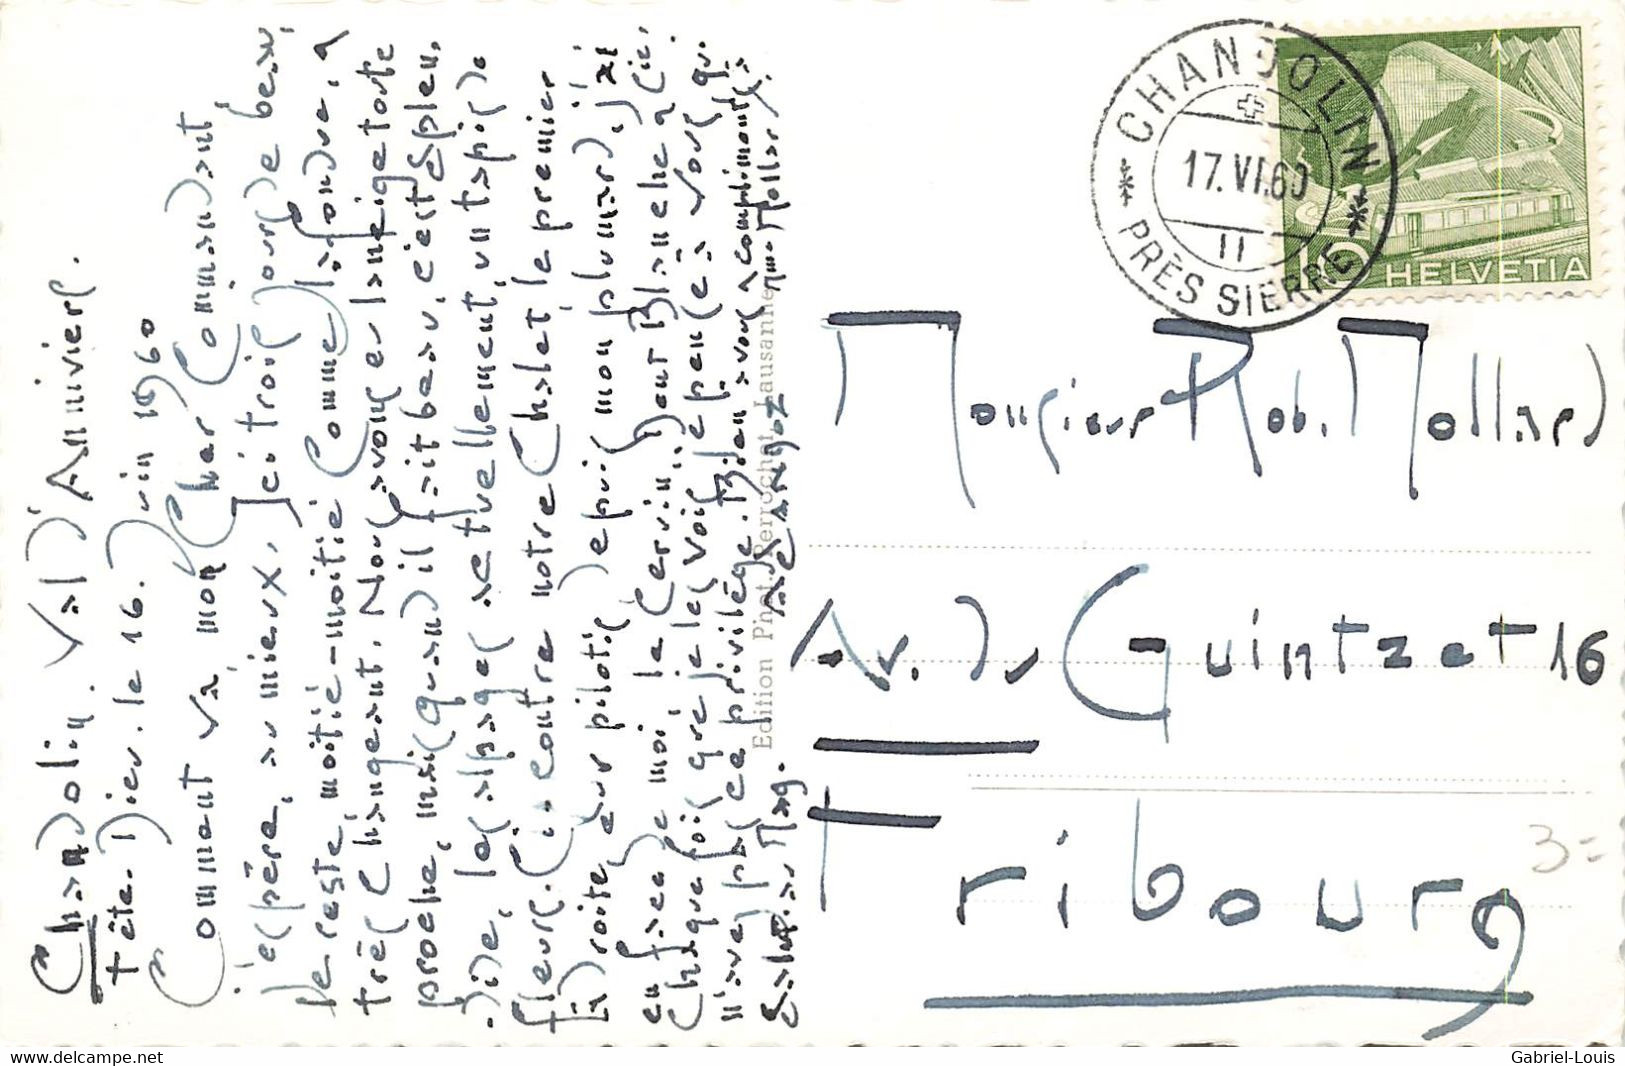 Chandolin. Val d'Anniviers.
Fête. Dieu. le 16. Juin 1960
Comment va, mon Cher Commandant
J'espère, au mieux. Ici trois jours de beau,
le reste, moitié-moitié comme la fondue, 
très changeant. Nous avons eu la neige toute
proche, mais quand il fait beau, c'est splen.
.dide, les alpages actuellement, un tapis de
fleurs. Ci-contre notre Chalet, le premier
à droite, sur pilotis depuis mon plumard, j'ai
en face de moi, la Cervin, dent Blanche 
Chaque fois que je les vois je pense à vous qui
n'avez pas ce privilège. Bien à vous & compliments à
Mollard
Edition Phot. Perrochet Lausanne
CHANDOLIN
17.VI.60
11
PRÈS SIERRE
10 HELVETIA
Monsieur Rob. Mollard
Av. du Guintzet 16
Fribourg
3=
Gabriel-Louis